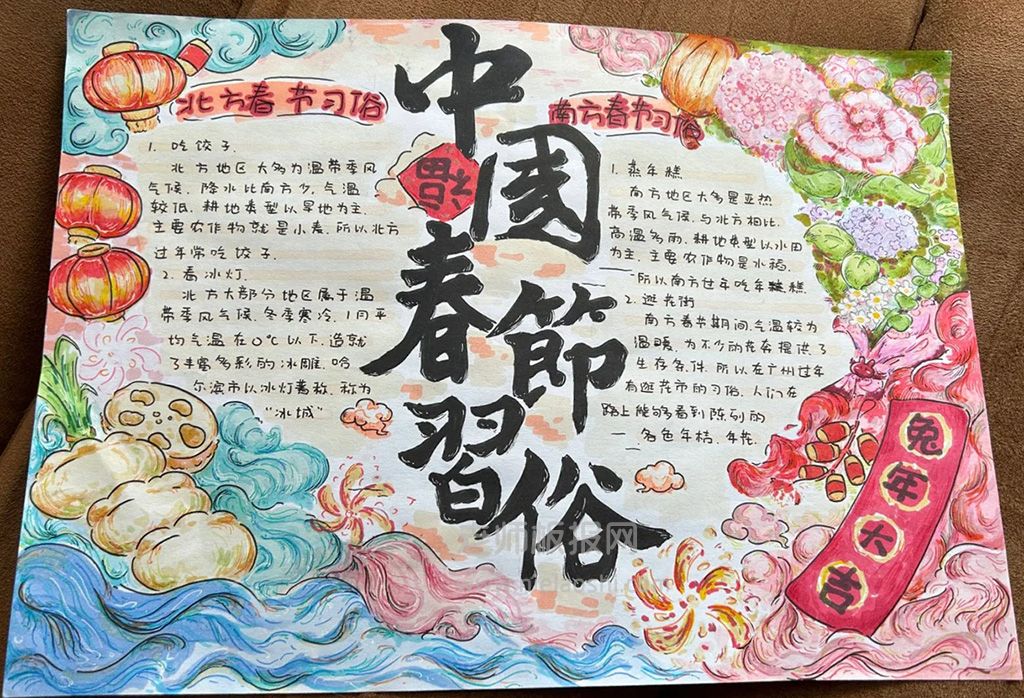 中國春節習俗
福
北方春节习俗
1. 吃饺子.
北方地区大多为温带季风
气候, 降水比南方少, 气温
较低. 耕地类型以旱地为主.
主要农作物就是小麦. 所以北方
过年常吃饺子.
2. 看冰灯.
北方大部分地区属于温
带季风气候. 冬季寒冷. 1月平
均气温在0℃以下. 造就
了丰富多彩的冰雕. 哈
尔滨市以冰灯著称. 称为
“冰城”
南方春节习俗
1. 蒸年糕
南方地区大多是亚热
带季风气候. 与北方相比.
高温多雨. 耕地类型以水田
为主. 主要农作物是水稻.
所以南方过年吃年糕.
2. 逛花街
南方春节期间, 气温较为
温暖, 为不少的花卉提供了
生存条件. 所以在广州过年
有逛花市的习俗. 人们在
路上能够看到陈列的
各色年桔、年花.
兔年大吉
师版报网